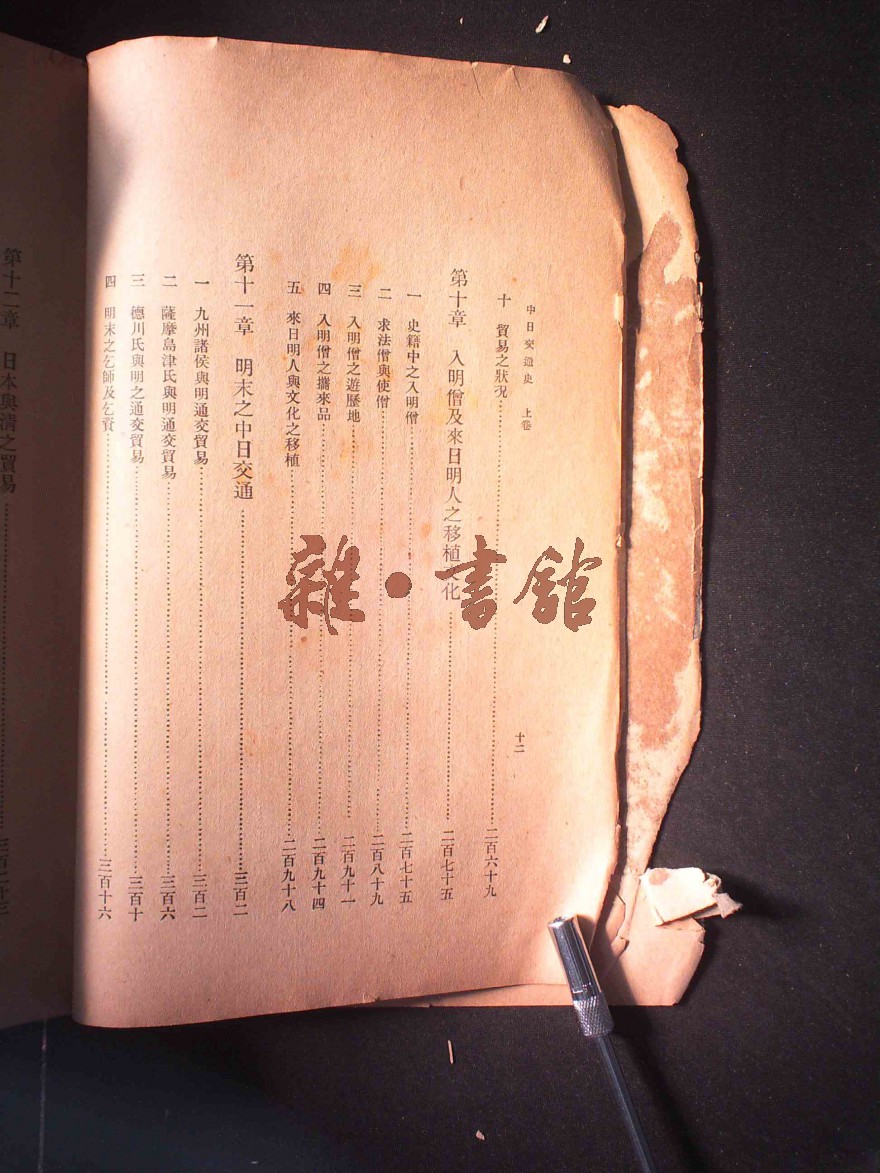 中日交通史　上卷
十二
十　貿易之狀況……二百六十九
第十章　入明僧及來日明人之移植文化……二百七十五
一　史籍中之入明僧……二百七十五
二　求法僧與使僧……二百八十九
三　入明僧之遊歷地……二百九十一
四　入明僧之攜來品……二百九十四
五　來日明人與文化之移植……二百九十八
第十一章　明末之中日交通……三百二
一　九州諸侯與明通交貿易……三百二
二　薩摩島津氏與明通交貿易……三百六
三　德川氏與明之通交貿易……三百十
四　明末之乞師及乞資……三百十六
第十二章　日本與清之貿易……三百二十三
雜·書館